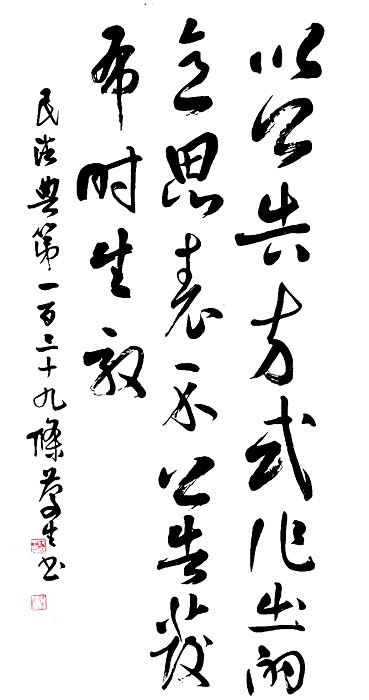 以公告方式作出的
意思表示公告發
布时生效
民法典第一百三十九條 夢生书